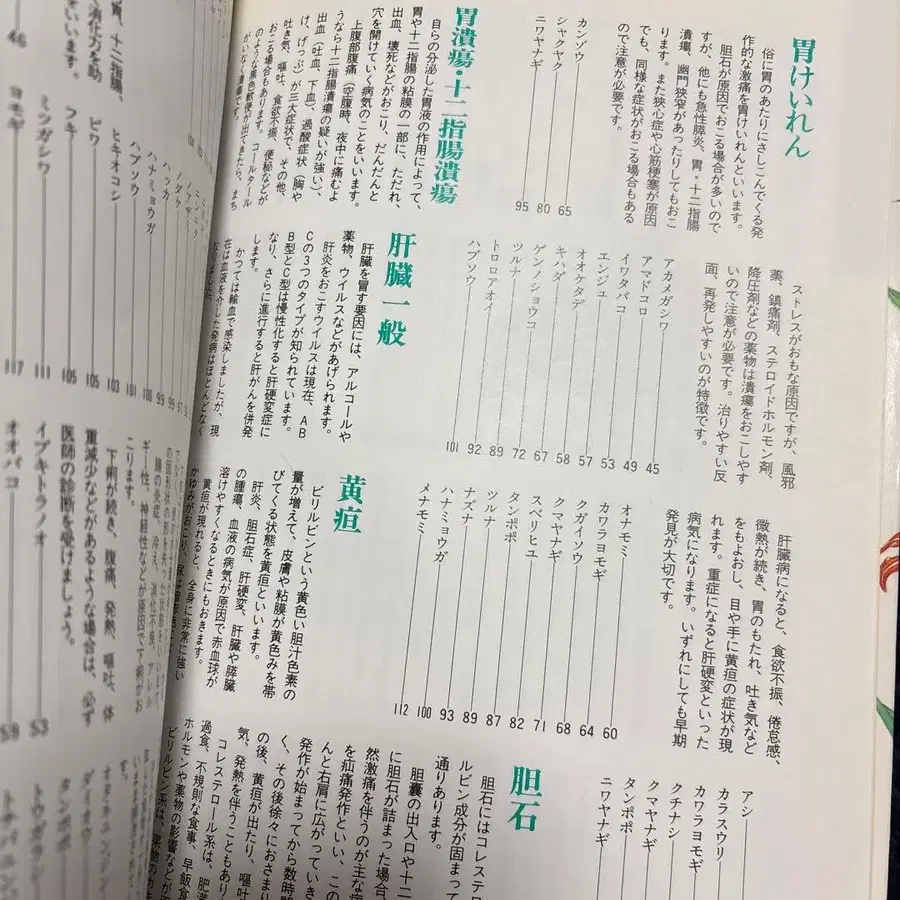 胃けいれん
俗に胃のあたりにさしこんでくる発
作的な激痛を胃けいれんといいます。
胆石が原因でおこる場合が多いので
すが、他にも急性膵炎、胃・十二指腸
潰瘍、幽門狭窄があったりしてもおこ
ります。また狭心症や心筋梗塞が原因
でも、同様な症状がおこる場合もある
ので注意が必要です。
カンゾウ 65
シャクヤク 80
ニワヤナギ 95
胃潰瘍・十二指腸潰瘍
自らの分泌した胃液の作用によって、
胃や十二指腸の粘膜の一部に、ただれ、
出血、壊死などがおこり、だんだんと
穴を開けていく病気のことをいいます。
上腹部腹痛（空腹時、夜中に痛むよ
うなら十二指腸潰瘍の疑いが強い）、
出血（吐血、下血）、過酸症状（胸や
け、げっぷ）が三大症状で、その他、
吐き気、嘔吐、食欲不振、便秘などが
おこる場合もあります。コールタール
のような黒色軟便が出てきたら、まち
がいなく潰瘍です。
ストレスがおもな原因ですが、風邪
薬、鎮痛剤、ステロイドホルモン剤、
降圧剤などの薬物は潰瘍をおこしやす
いので注意が必要です。治りやすい反
面、再発しやすいのが特徴です。
アカメガシワ 45
アマドコロ 49
イワタバコ 53
エンジュ 57
オオケタデ 58
キハダ 67
ゲンノショウコ 72
ツルナ 89
トロロアオイ 92
ハブソウ 101
肝臓一般
肝臓を冒す要因には、アルコールや
薬物、ウイルスなどがあげられます。
肝炎をおこすウイルスは現在、AB
Cの3つのタイプが知られています。
B型とC型は慢性化すると肝硬変に
なり、さらに進行すると肝がんを併発
します。
かつては輸血で感染しましたが、現
在は血液を介した発病はほとんどなく
なりました。
肝臓病になると、食欲不振、倦怠感、
微熱が続き、胃のもたれ、吐き気など
をもよおし、目や手に黄疸の症状が現
れます。重症になると肝硬変といった
病気になります。いずれにしても早期
発見が大切です。
オナモミ 60
カワラヨモギ 64
クガイソウ 68
クマヤナギ 71
スベリヒユ 82
タンポポ 87
ツルナ 89
ナズナ 93
ハナミョウガ 100
メナモミ 112
黄疸
ビリルビンという黄色い胆汁色素の
量が増えて、皮膚や粘膜が黄色みを帯
びてくる状態を黄疸といいます。
肝炎、胆石症、肝硬変、肝臓や膵臓
の腫瘍、血液の病気が原因で赤血球が
溶けやすくなるときにもおきます。
黄疸が現れると、全身に非常に強い
かゆみがおこり、
アシ
カラスウリ
カワラヨモギ
クチナシ
クマヤナギ
タンポポ
ニワヤナギ
胆石
胆石にはコレステロ
ルビン成分が固まって
通りあります。
胆嚢の出入口や十二
に胆石が詰まった場合、
然激痛を伴うのが主な症
を疝痛発作といい、この
んと右肩に広がっていき
発作が始まってから数時間
く、その後徐々におさまり
の後、黄疸が出たり、嘔吐
気、発熱を伴うこともあり
コレステロール系は、肥満
過食、不規則な食事、早飯食
ホルモンや薬物の影響などが
ビリルビン系は、
胃、十二指腸、
消化力を助
います。
46
ヒキオコシ 103
ビワ 105
フキ 105
ミツガシワ 111
ヨモギ 117
ハッカ
ハナミョウガ 100
ハブソウ 101
ギー性、神経性などが原因で下痢がお
こります。
下痢が続き、腹痛、発熱、嘔吐、体
重減少などがあるような場合は、必ず
医師の診断を受けましょう。
イブキトラノオ 53
オオバコ 59